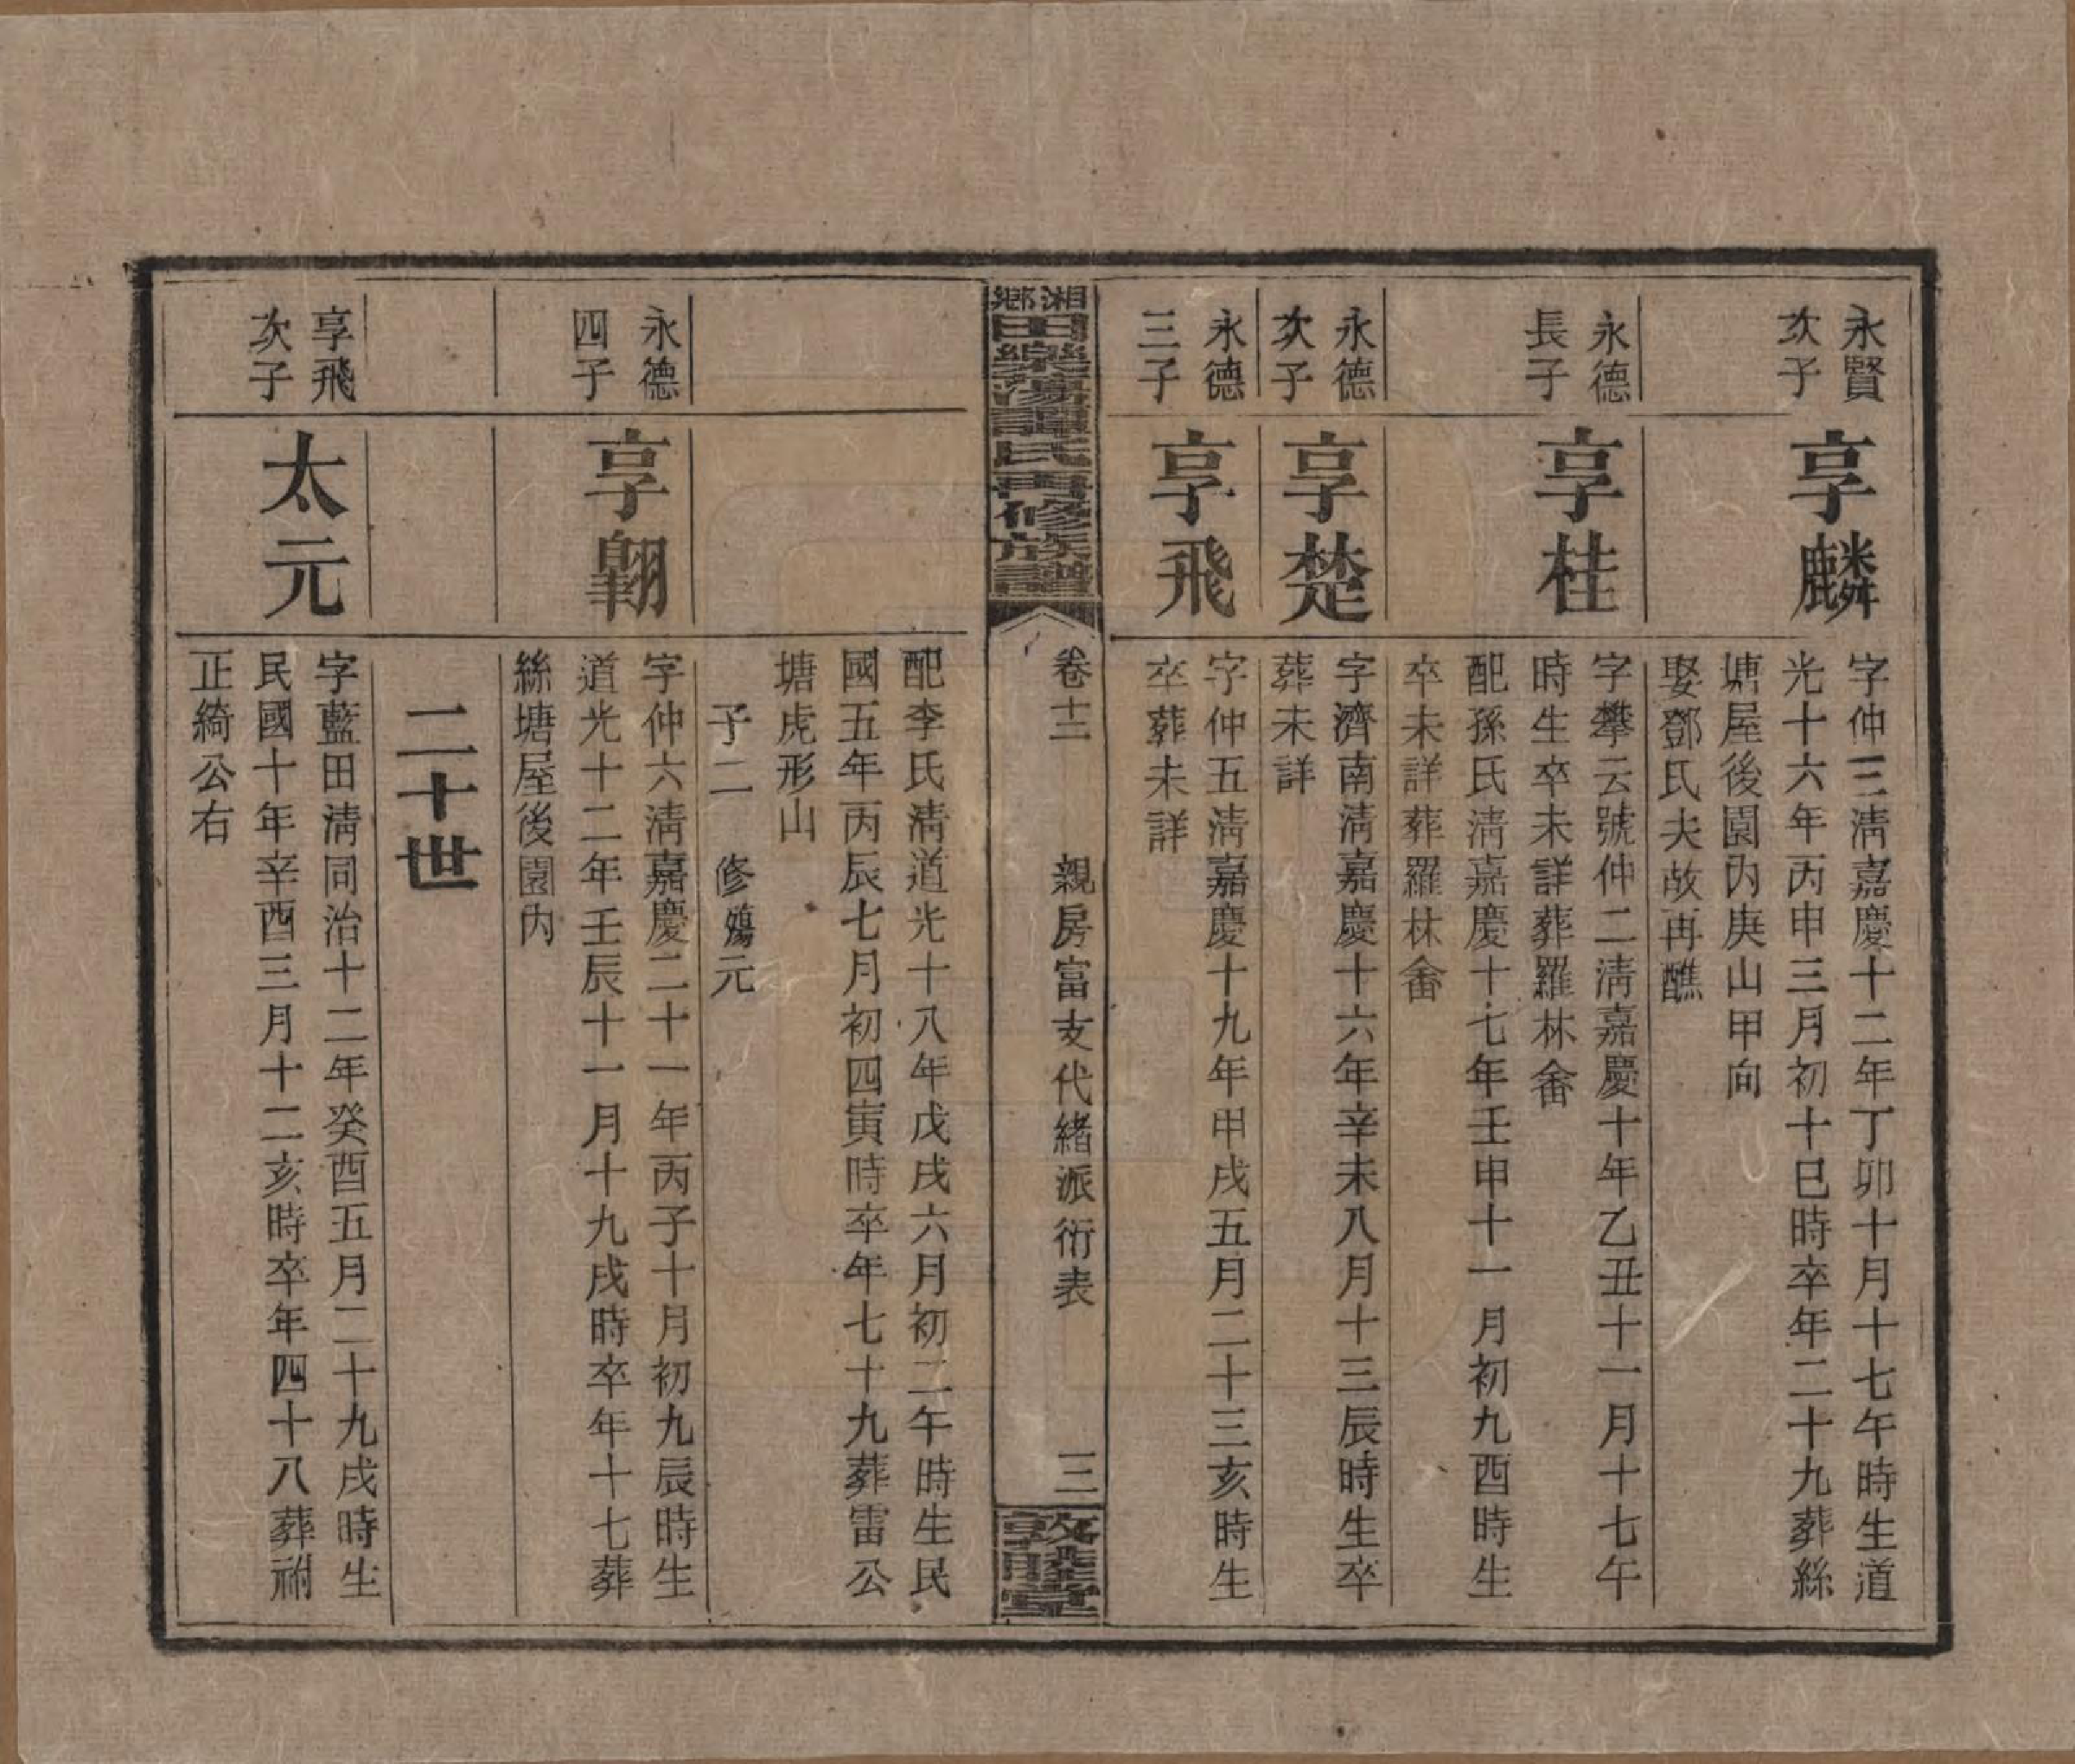 永賢
次子
享麟
字仲三清嘉慶十二年丁卯十月十七午時生道
光十六年丙申三月初十巳時卒年二十九葬絲
塘屋後園內庚山甲向
娶鄧氏夫故再醮
永德
長子
享桂
字攀云號仲二清嘉慶十年乙丑十一月十七午
時生卒未詳葬羅林畬
配孫氏清嘉慶十七年壬申十一月初九酉時生
卒未詳葬羅林畬
永德
次子
享楚
字濟南清嘉慶十六年辛未八月十三辰時生卒
葬未詳
永德
三子
享飛
字仲五清嘉慶十九年甲戌五月二十三亥時生
卒葬未詳
湘鄉田樂湯譚氏再修族譜
卷十二 親房富支代緒派衍表 三
敦睦堂
配李氏清道光十八年戊戌六月初二午時生民
國五年丙辰七月初四寅時卒年七十九葬雷公
塘虎形山
子二 修殤 元
永德
四子
享翺
字仲六清嘉慶二十一年丙子十月初九辰時生
道光十二年壬辰十一月十九戌時卒年十七葬
絲塘屋後園內
二十世
享飛
次子
太元
字藍田清同治十二年癸酉五月二十九戌時生
民國十年辛酉三月十二亥時卒年四十八葬祔
正綺公右